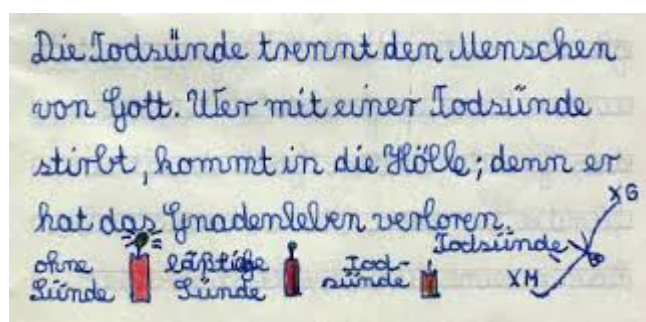 Die Todsünde trennt den Menschen
von Gott. Wer mit einer Todsünde
stirbt, kommt in die Hölle; denn er
hat das Gnadenleben verloren.
ohne
Sünde
läßliche
Sünde
Tod-
sünde
Todsünde
XG
XM